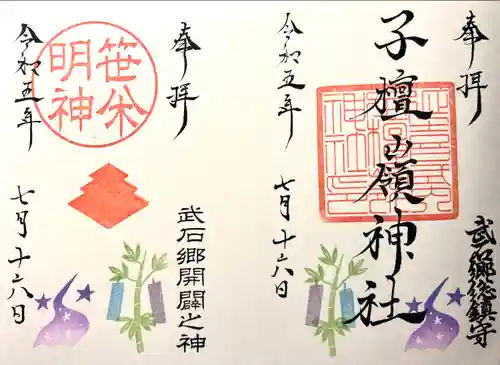 奉拝
子檀嶺神社
武石郷総鎮守
令和五年
七月十六日
奉拝
笹焼
明神
武石郷開闢之神
令和五年
七月十六日